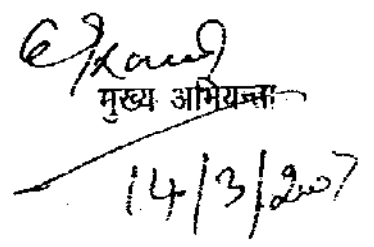 मुख्य अभियन्ता
14/3/2007